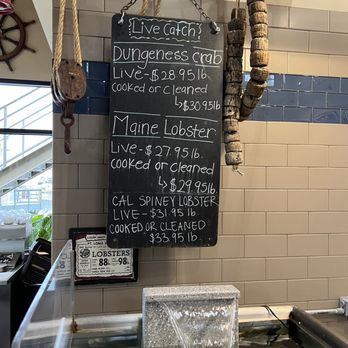 Live Catch
Dungeness Crab
Live - $28.95 lb.
Cooked or Cleaned
↳$30.95 lb
Maine Lobster
Live - $27.95 lb.
Cooked or Cleaned
↳$29.95 lb
CAL SPINEY LOBSTER
LIVE - $31.95 lb
COOKED OR CLEANED
$33.95 lb.
LOBSTERS
88 98